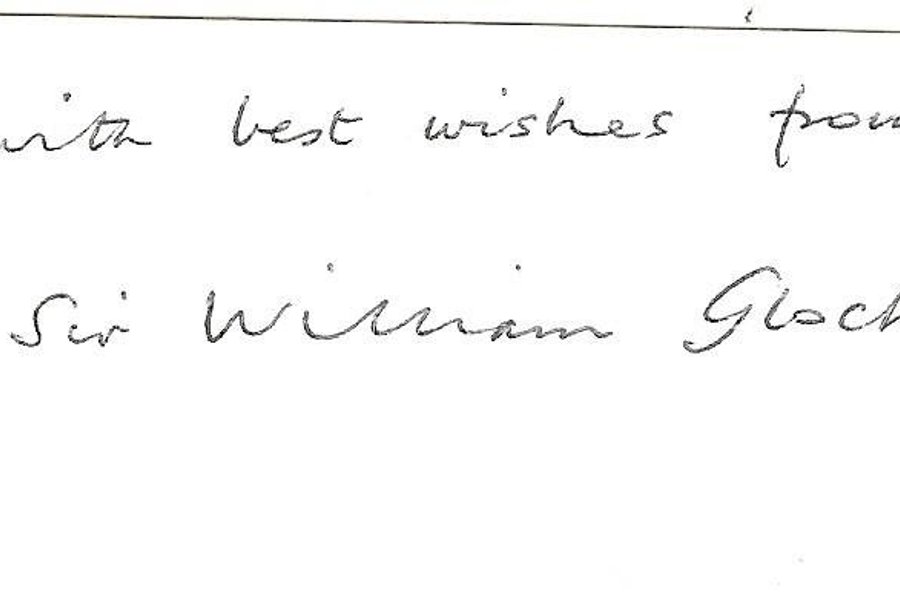 with best wishes from
Sir William Gloch